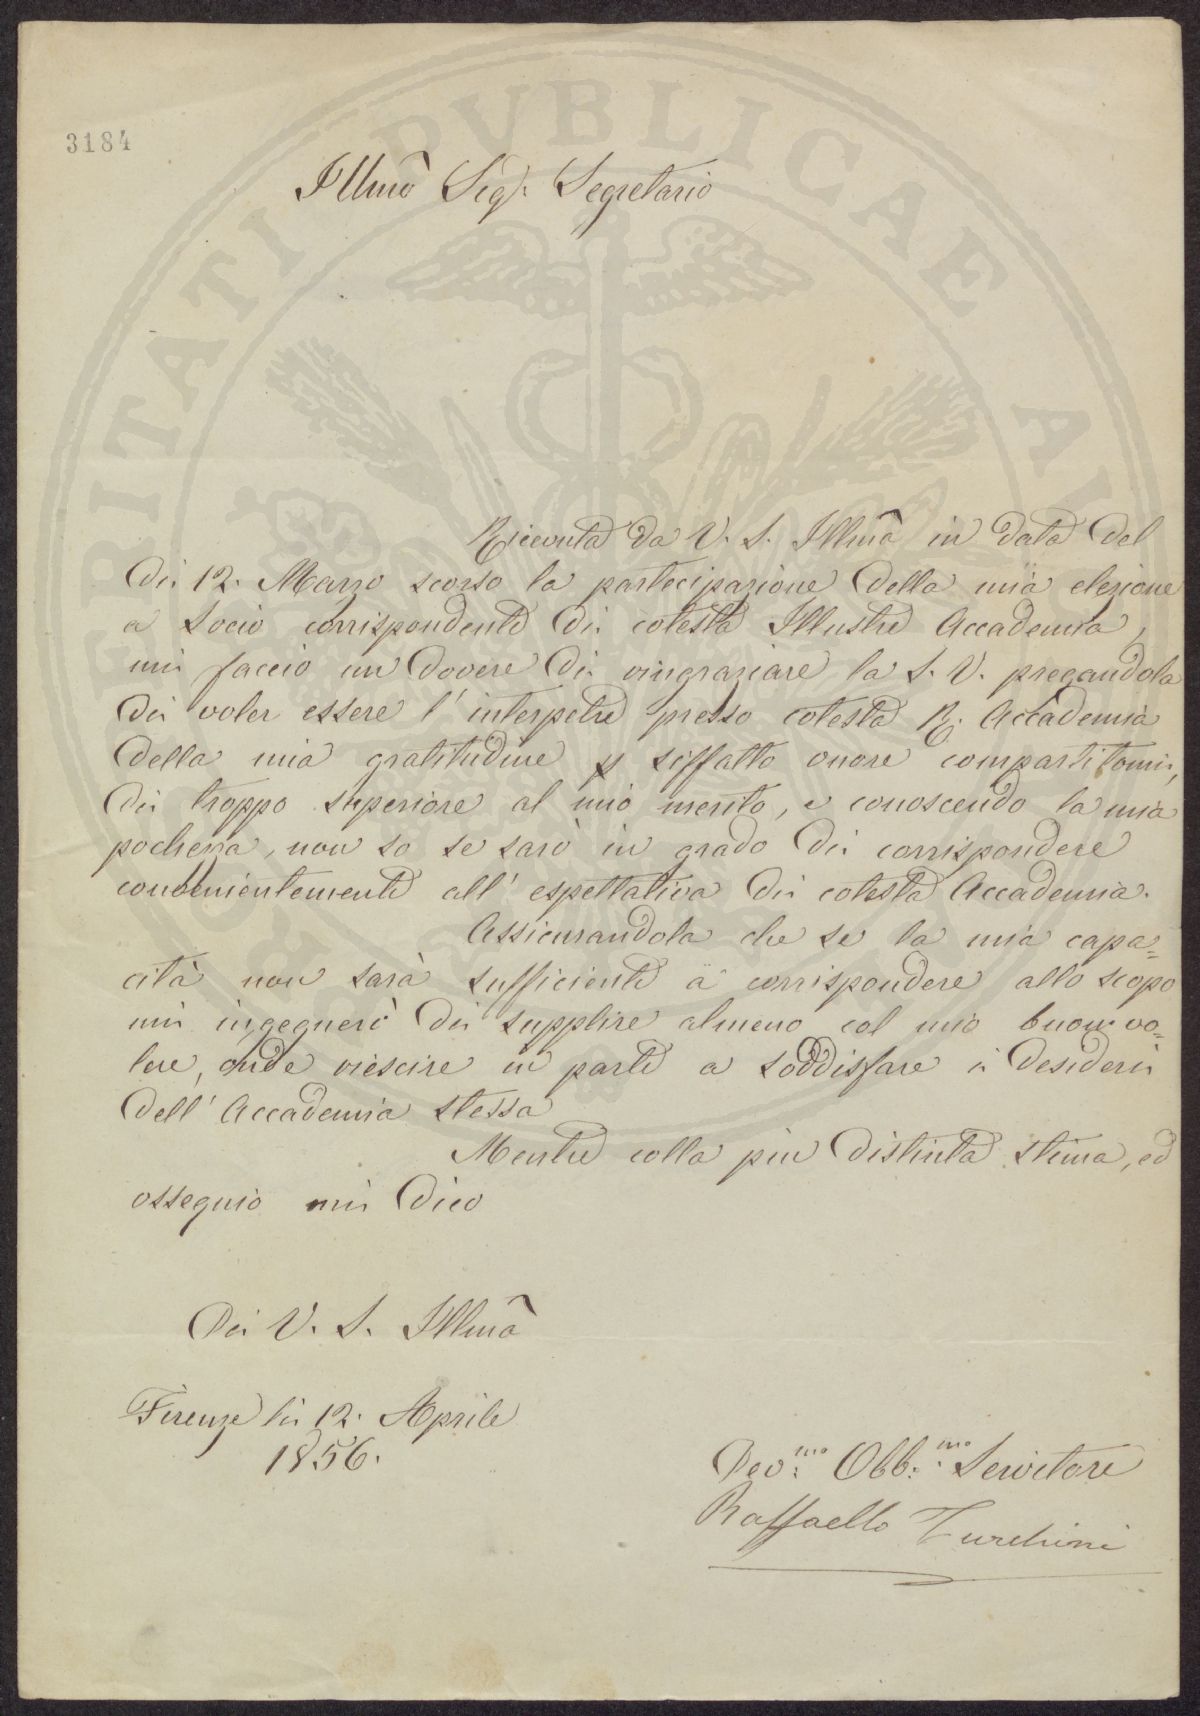 3184
Illmo Sigr. Segretario
Ricevuta da V. S. Illma in data del
dì 12. Marzo scorso la partecipazione della mia elezione
a Socio corrispondente di cotesta Illustre Accademia,
mi faccio un dovere di ringraziare la S. V. pregandola
di voler essere l'interpetre presso cotesta R. Accademia
della mia gratitudine p siffatto onore compartitomi,
di troppo superiore al mio merito, e conoscendo la mia
pochezza, non so se sarò in grado di corrispondere
convenientemente all'espettativa di cotesta Accademia.
Assicurandola che se la mia capa=
cità non sarà sufficiente a corrispondere allo scopo
mi ingegnerò di supplire almeno col mio buon vo=
lere, onde riescire in parte a soddisfare i desideri
dell'Accademia stessa
Mentre colla più distinta stima, ed
ossequio mi dico
Di V. S. Illma
Firenze li 12. Aprile
1856.
Dev:mo Obb:mo Servitore
Raffaello Turchini